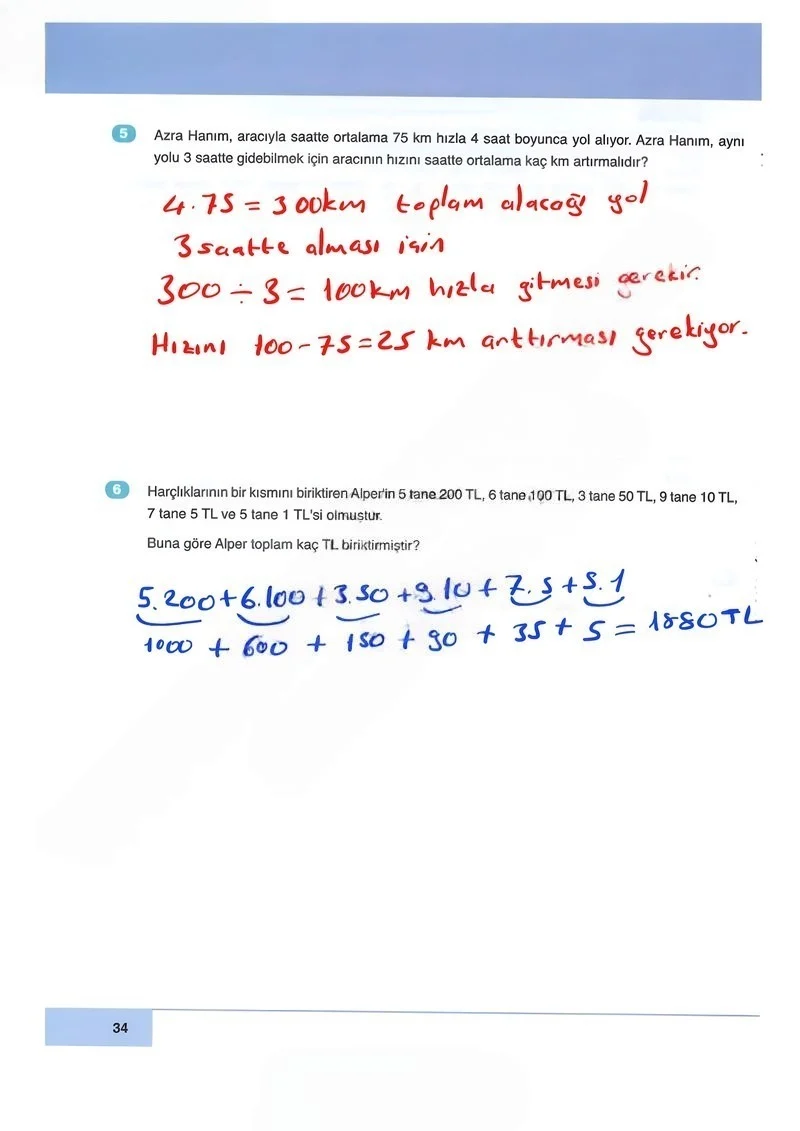 5 Azra Hanım, aracıyla saatte ortalama 75 km hızla 4 saat boyunca yol alıyor. Azra Hanım, aynı
yolu 3 saatte gidebilmek için aracının hızını saatte ortalama kaç km artırmalıdır?
4.75 = 300km toplam alacağı yol
3 saatte alması için
300 ÷ 3 = 100km hızla gitmesi gerekir.
Hızını 100-75=25 km arttırması gerekiyor.
6 Harçlıklarının bir kısmını biriktiren Alper'in 5 tane 200 TL, 6 tane 100 TL, 3 tane 50 TL, 9 tane 10 TL,
7 tane 5 TL ve 5 tane 1 TL'si olmuştur.
Buna göre Alper toplam kaç TL biriktirmiştir?
5.200+6.100+3.50+9.10+7.5+5.1
1000 + 600 + 150 + 90 + 35 + 5 = 1880TL
34